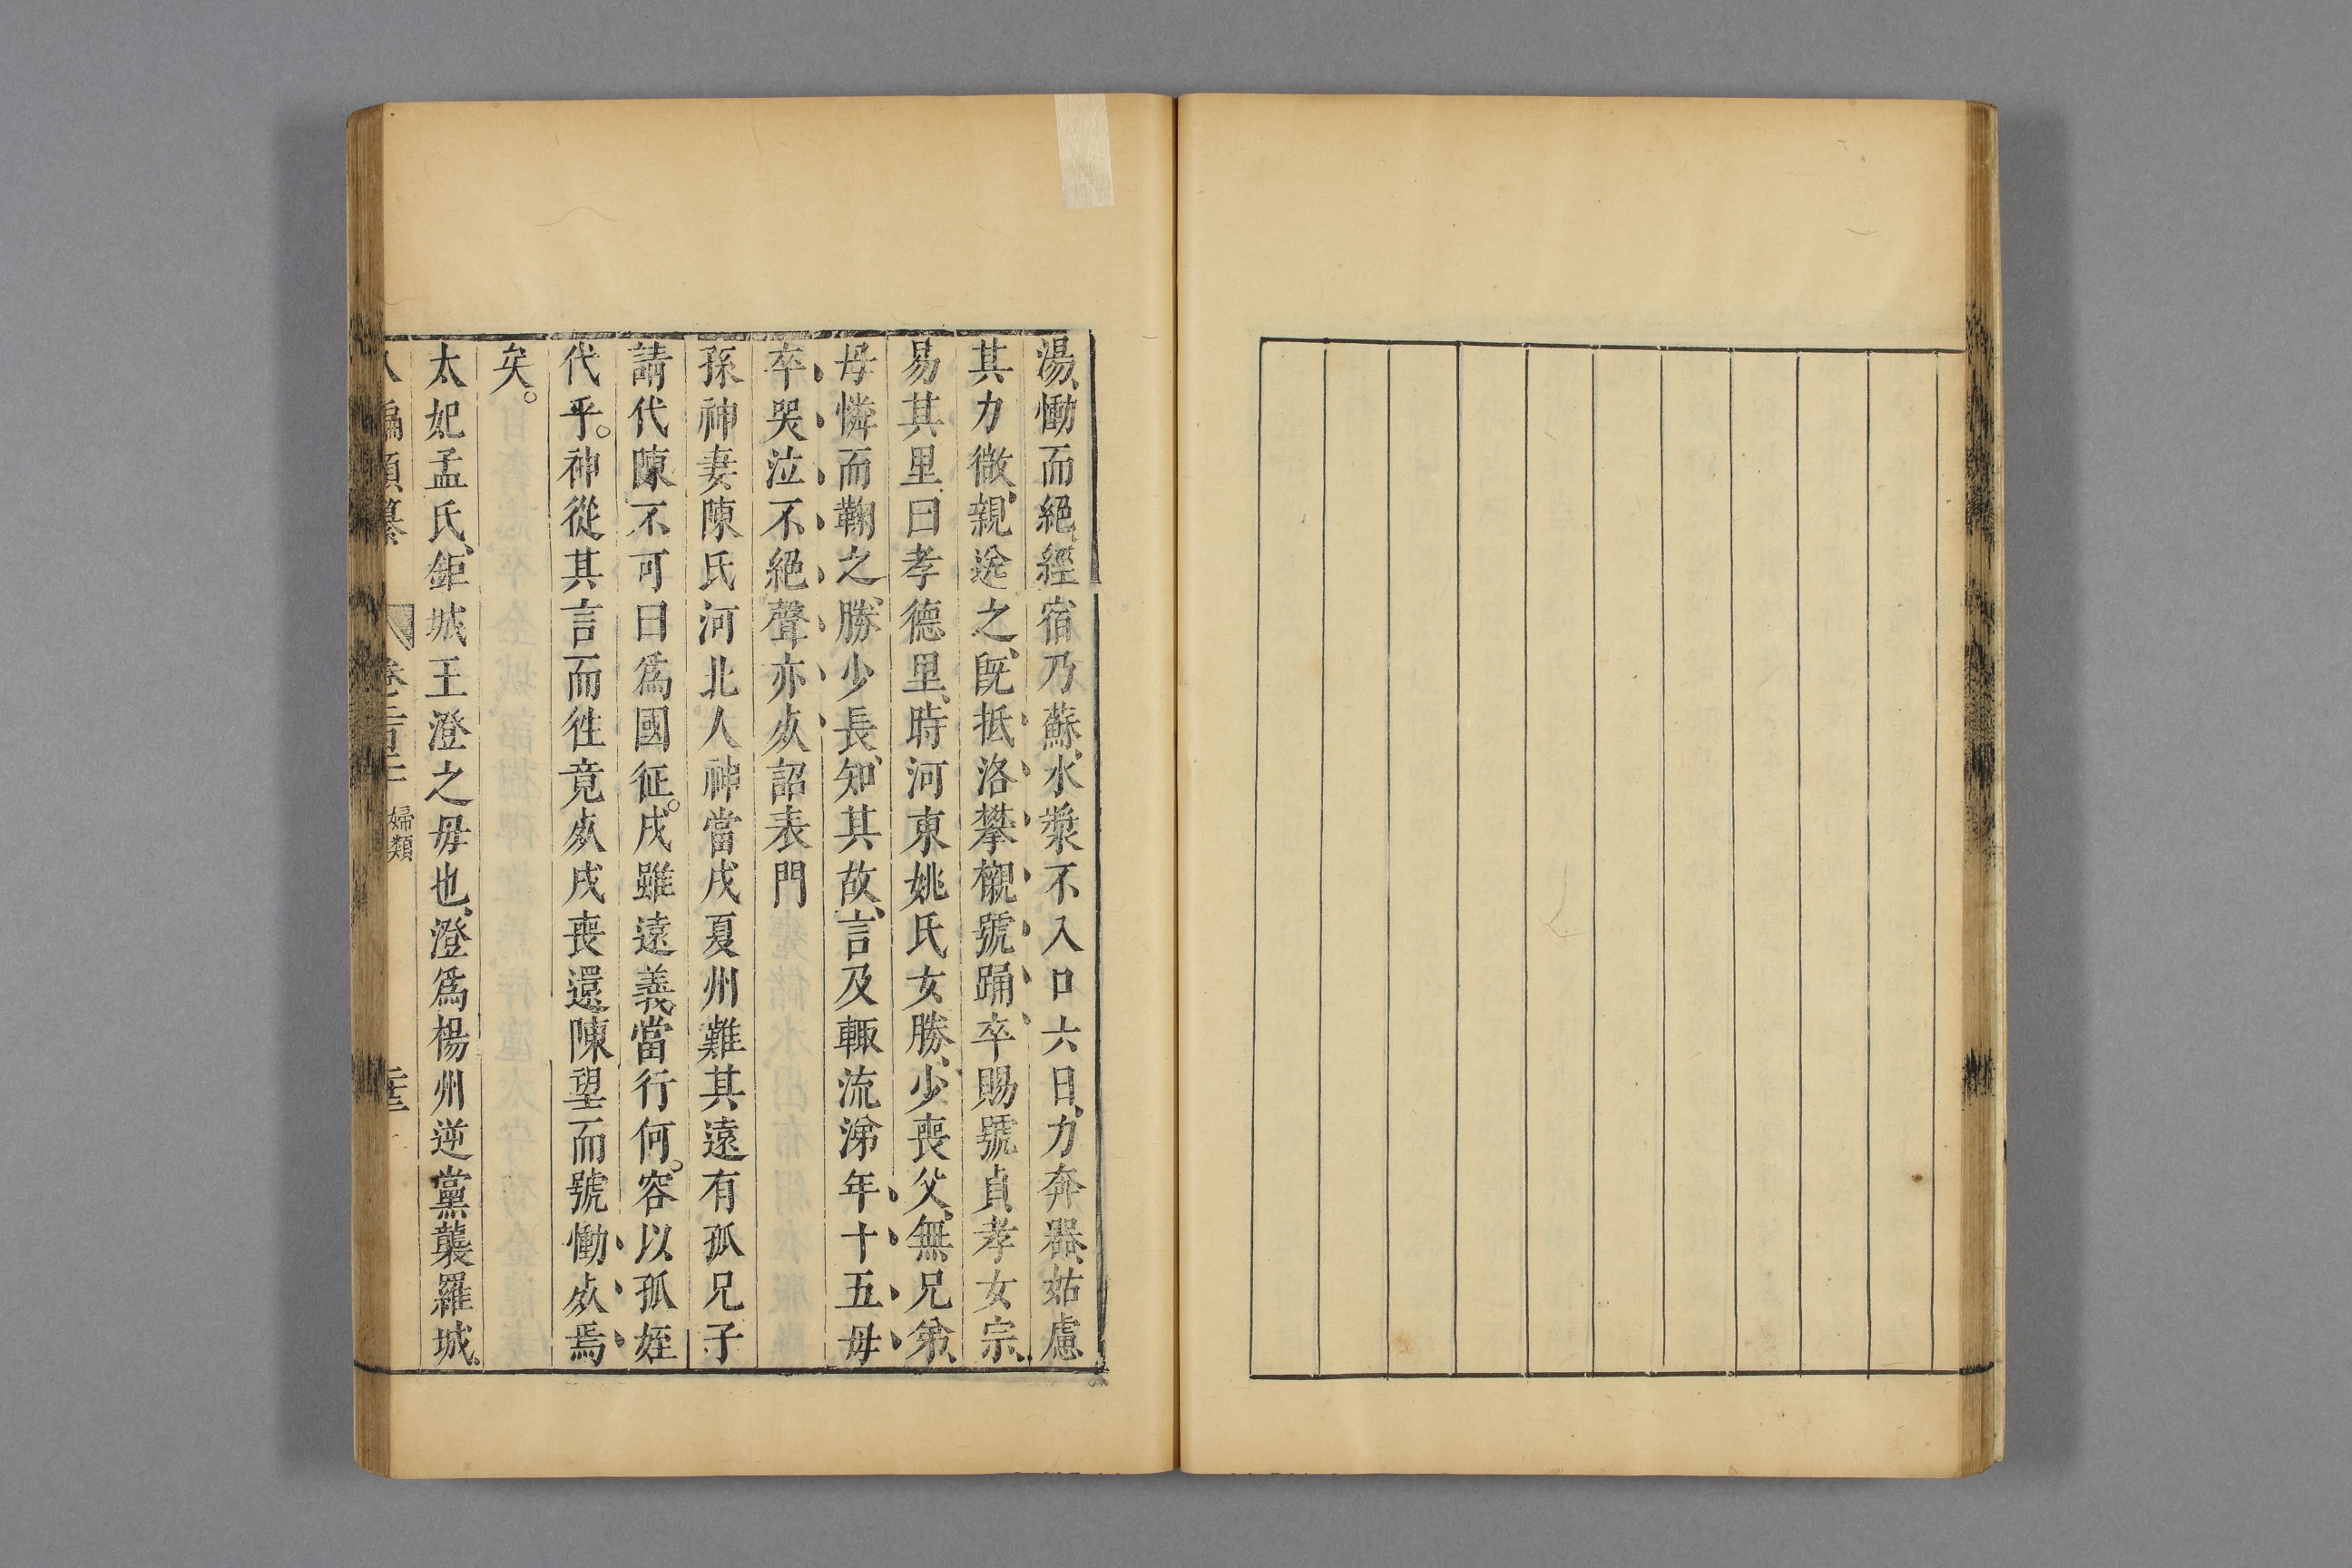 湯慟而絕經宿乃蘇水漿不入口六日力奔器姑慮
其力微親送之既抵洛攀櫬號踊卒賜號貞孝女宗
易其里曰孝德里時河東姚氏女勝少喪父無兄弟
母憐而鞠之勝少長知其故言及輒流涕年十五母
卒哭泣不絕聲亦死詔表門
孫神妻陳氏河北人神當戍夏州難其遠有孤兄子
請代陳不可曰為國征戍雖遠義當行何容以孤姪
代乎神從其言而往竟死戍喪還陳望而號慟死焉
矣
太妃孟氏鉅城王澄之母也澄為楊州逆黨襲羅城
八編類纂
婦類